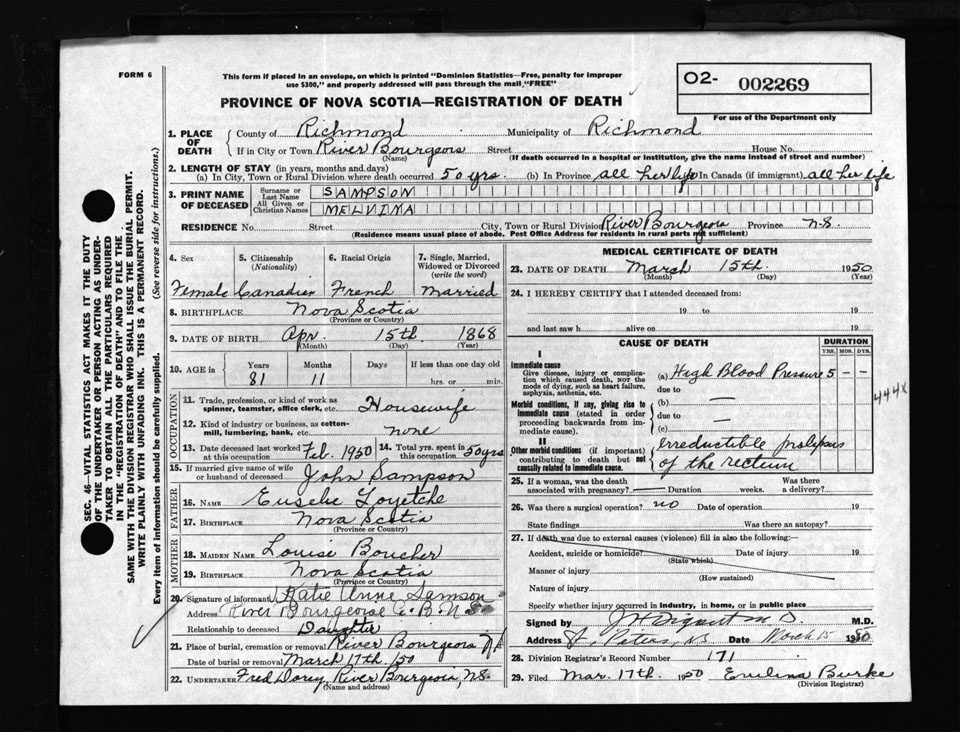 FORM 6
This form if placed in an envelope, on which is printed "Dominion Statistics—Free, penalty for improper
use $300," and properly addressed will pass through the mail "FREE"
PROVINCE OF NOVA SCOTIA—REGISTRATION OF DEATH
O2- 002269
For use of the Department only
1. PLACE OF DEATH
County of Richmond Municipality of Richmond
If in City or Town River Bourgeois Street House No.
(Name) (If death occurred in a hospital or institution, give the name instead of street and number)
2. LENGTH OF STAY (in years, months and days)
(a) In City, Town or Rural Division where death occurred 50 yrs. (b) In Province all her life In Canada (if immigrant) all her life
3. PRINT NAME OF DECEASED
Surname or Last Name SAMPSON
All Given or Christian Names MELVINA
RESIDENCE No. Street City, Town or Rural Division River Bourgeois Province N.S.
(Residence means usual place of abode. Post Office Address for residents in rural parts not sufficient)
4. Sex Female
5. Citizenship (Nationality) Canadien
6. Racial Origin French
7. Single, Married, Widowed or Divorced (write the word) Married
8. BIRTHPLACE Nova Scotia
(Province or Country)
9. DATE OF BIRTH Apr. 15th 1868
(Month) (Day) (Year)
10. AGE in Years Months Days If less than one day old
81 11 hrs. or min.
OCCUPATION
11. Trade, profession, or kind of work as spinner, teamster, office clerk, etc. Housewife
12. Kind of industry or business, as cotton-mill, lumbering, bank, etc. none
13. Date deceased last worked at this occupation Feb. 1950 14. Total yrs. spent in this occupation 50 yrs
15. If married give name of wife or husband of deceased John Sampson
FATHER
16. NAME Eusebe Goyetche
17. BIRTHPLACE Nova Scotia
(Province or Country)
MOTHER
18. MAIDEN NAME Louise Boucher
19. BIRTHPLACE Nova Scotia
(Province or Country)
20. Signature of informant Katie Anne Samson
Address River Bourgeoise C.B. N.S.
Relationship to deceased Daughter
21. Place of burial, cremation or removal River Bourgeois N.S
Date of burial or removal March 17th '50
22. UNDERTAKER Fred Dorey, River Bourgeois, N.S.
(Name and address)
MEDICAL CERTIFICATE OF DEATH
23. DATE OF DEATH March 15th. 1950
(Month) (Day) (Year)
24. I HEREBY CERTIFY that I attended deceased from:
19 to 19
and last saw h alive on 19
CAUSE OF DEATH DURATION
YRS. MOS. DYS.
I
Immediate cause
Give disease, injury or complication which caused death, not the mode of dying, such as heart failure, asphyxia, asthenia, etc.
(a) High Blood Pressure 5 – –
due to
Morbid conditions, if any, giving rise to immediate cause (stated in order proceeding backwards from immediate cause).
(b) —
due to —
(c)
II
Other morbid conditions (if important) contributing to death but not causally related to immediate cause.
Irreductible prolapsis
of the rectum
444X
25. If a woman, was the death associated with pregnancy? — Duration weeks. Was there a delivery?
26. Was there a surgical operation? no Date of operation 19
State findings Was there an autopsy?
27. If death was due to external causes (violence) fill in also the following:
Accident, suicide or homicide? Date of injury 19
(State which)
Manner of injury
(How sustained)
Nature of injury
Specify whether injury occurred in industry, in home, or in public place
Signed by M D M.D.
Address St. Peters, N.S. Date March 15 1950
28. Division Registrar's Record Number 171
29. Filed Mar. 17th. 1950 Emilina Burke
(Division Registrar)
SEC. 46—VITAL STATISTICS ACT MAKES IT THE DUTY
OF THE UNDERTAKER OR PERSON ACTING AS UNDER-
TAKER TO OBTAIN ALL THE PARTICULARS REQUIRED
IN THE "REGISTRATION OF DEATH" AND TO FILE THE
SAME WITH THE DIVISION REGISTRAR WHO SHALL ISSUE THE BURIAL PERMIT.
WRITE PLAINLY WITH UNFADING INK. THIS IS A PERMANENT RECORD.
Every item of information should be carefully supplied. (See reverse side for instructions.)